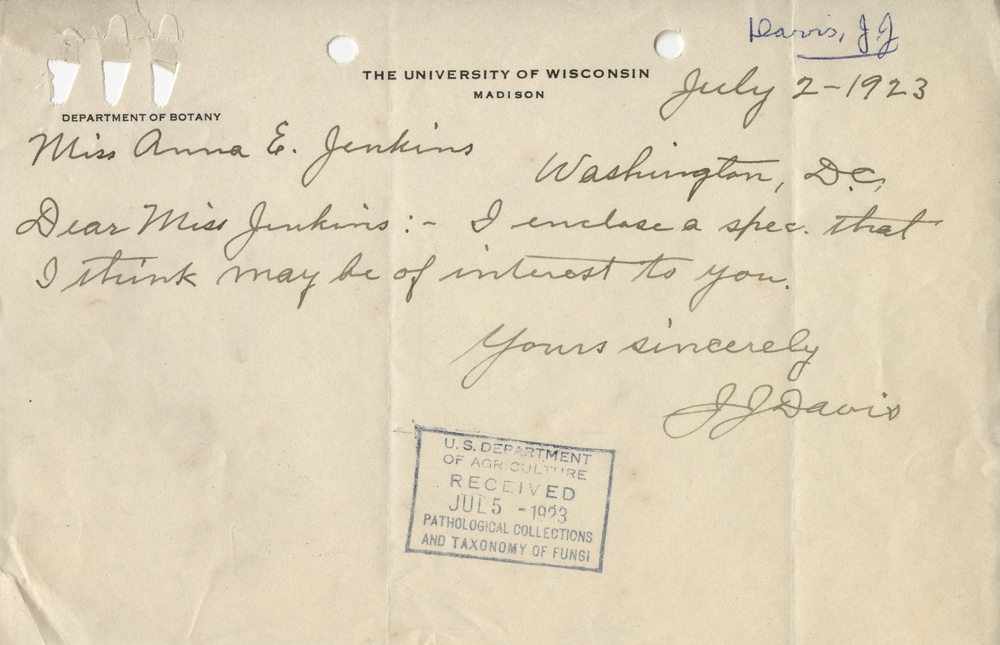 Davis, JJ
THE UNIVERSITY OF WISCONSIN
MADISON
DEPARTMENT OF BOTANY
July 2-1923
Miss Anna E. Jenkins
Washington, D.C.
Dear Miss Jenkins:- I enclose a spec. that
I think may be of interest to you.
Yours sincerely
JJDavis
U.S. DEPARTMENT
OF AGRICULTURE
RECEIVED
JUL 5 - 1923
PATHOLOGICAL COLLECTIONS
AND TAXONOMY OF FUNGI